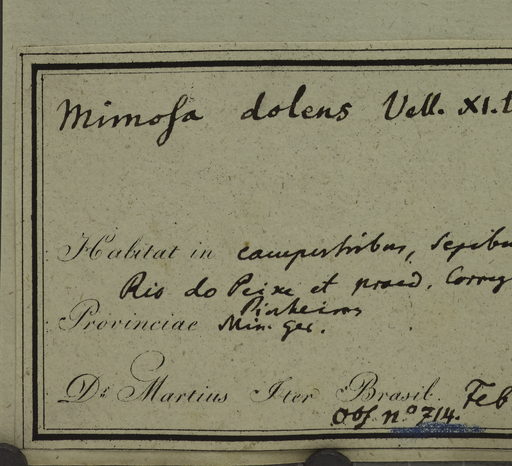 Mimosa dolens Vell. XI. t
Habitat in campestribus, Sepibu
Rio do Peixe et praed. Correg
Pinheiros
Provinciae Min. Ger.
Dr Martius Iter Brasil. Feb
Obs. nº 714.